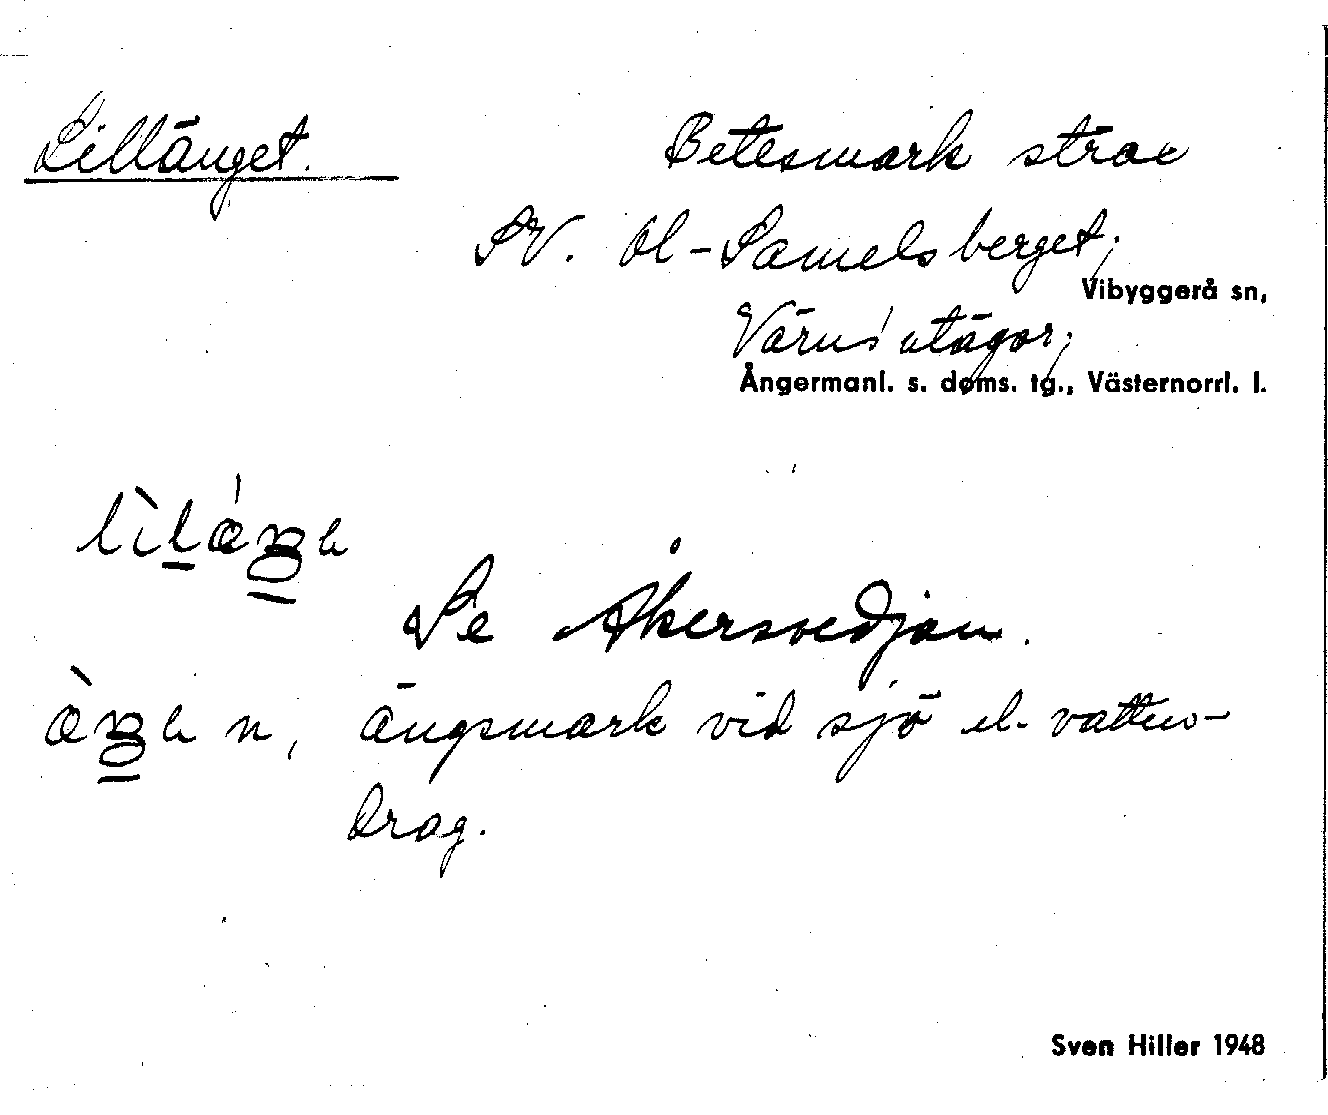 Lillänget.
Betesmark strax
SV. Ol-Samelsberget;
Vibyggerå sn,
utägor;
Ångermanl. s. doms. tg., Västernorrl. l.
Se Åkersvedjan.
n, ängsmark vid sjö el. vatten-
drag.
Sven Hiller 1948